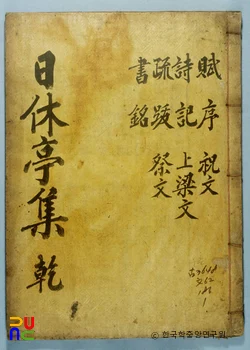 賦序祝文
詩記上梁文
疏跋祭文
書銘
日休亭集 乾
© 한국학중앙연구원